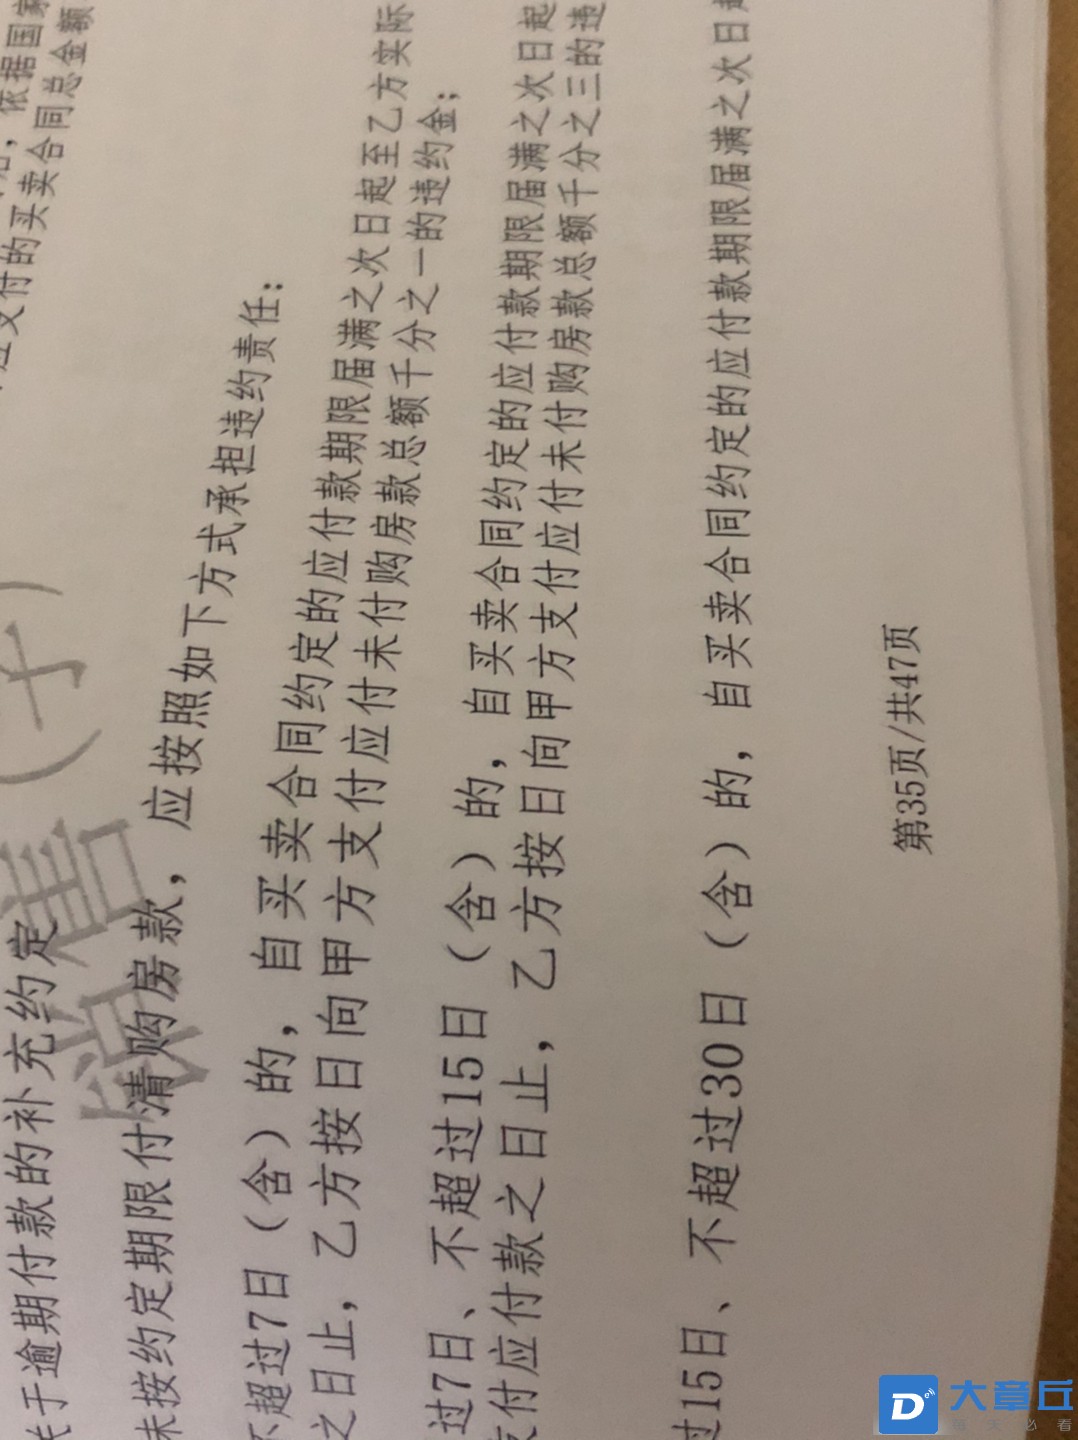 ，依据国家
应支付的买卖合同总金额
关于逾期付款的补充约定
未按约定期限付清购房款，应按照如下方式承担违约责任：
不超过7日（含）的，自买卖合同约定的应付款期限届满之次日起至乙方实际
之日止，乙方按日向甲方支付应付未付购房款总额千分之一的违约金；
过7日、不超过15日（含）的，自买卖合同约定的应付款期限届满之次日起
支付应付款之日止，乙方按日向甲方支付应付未付购房款总额千分之三的违
过15日、不超过30日（含）的，自买卖合同约定的应付款期限届满之次日起
第35页/共47页
预售（子）
大章丘
每天必看